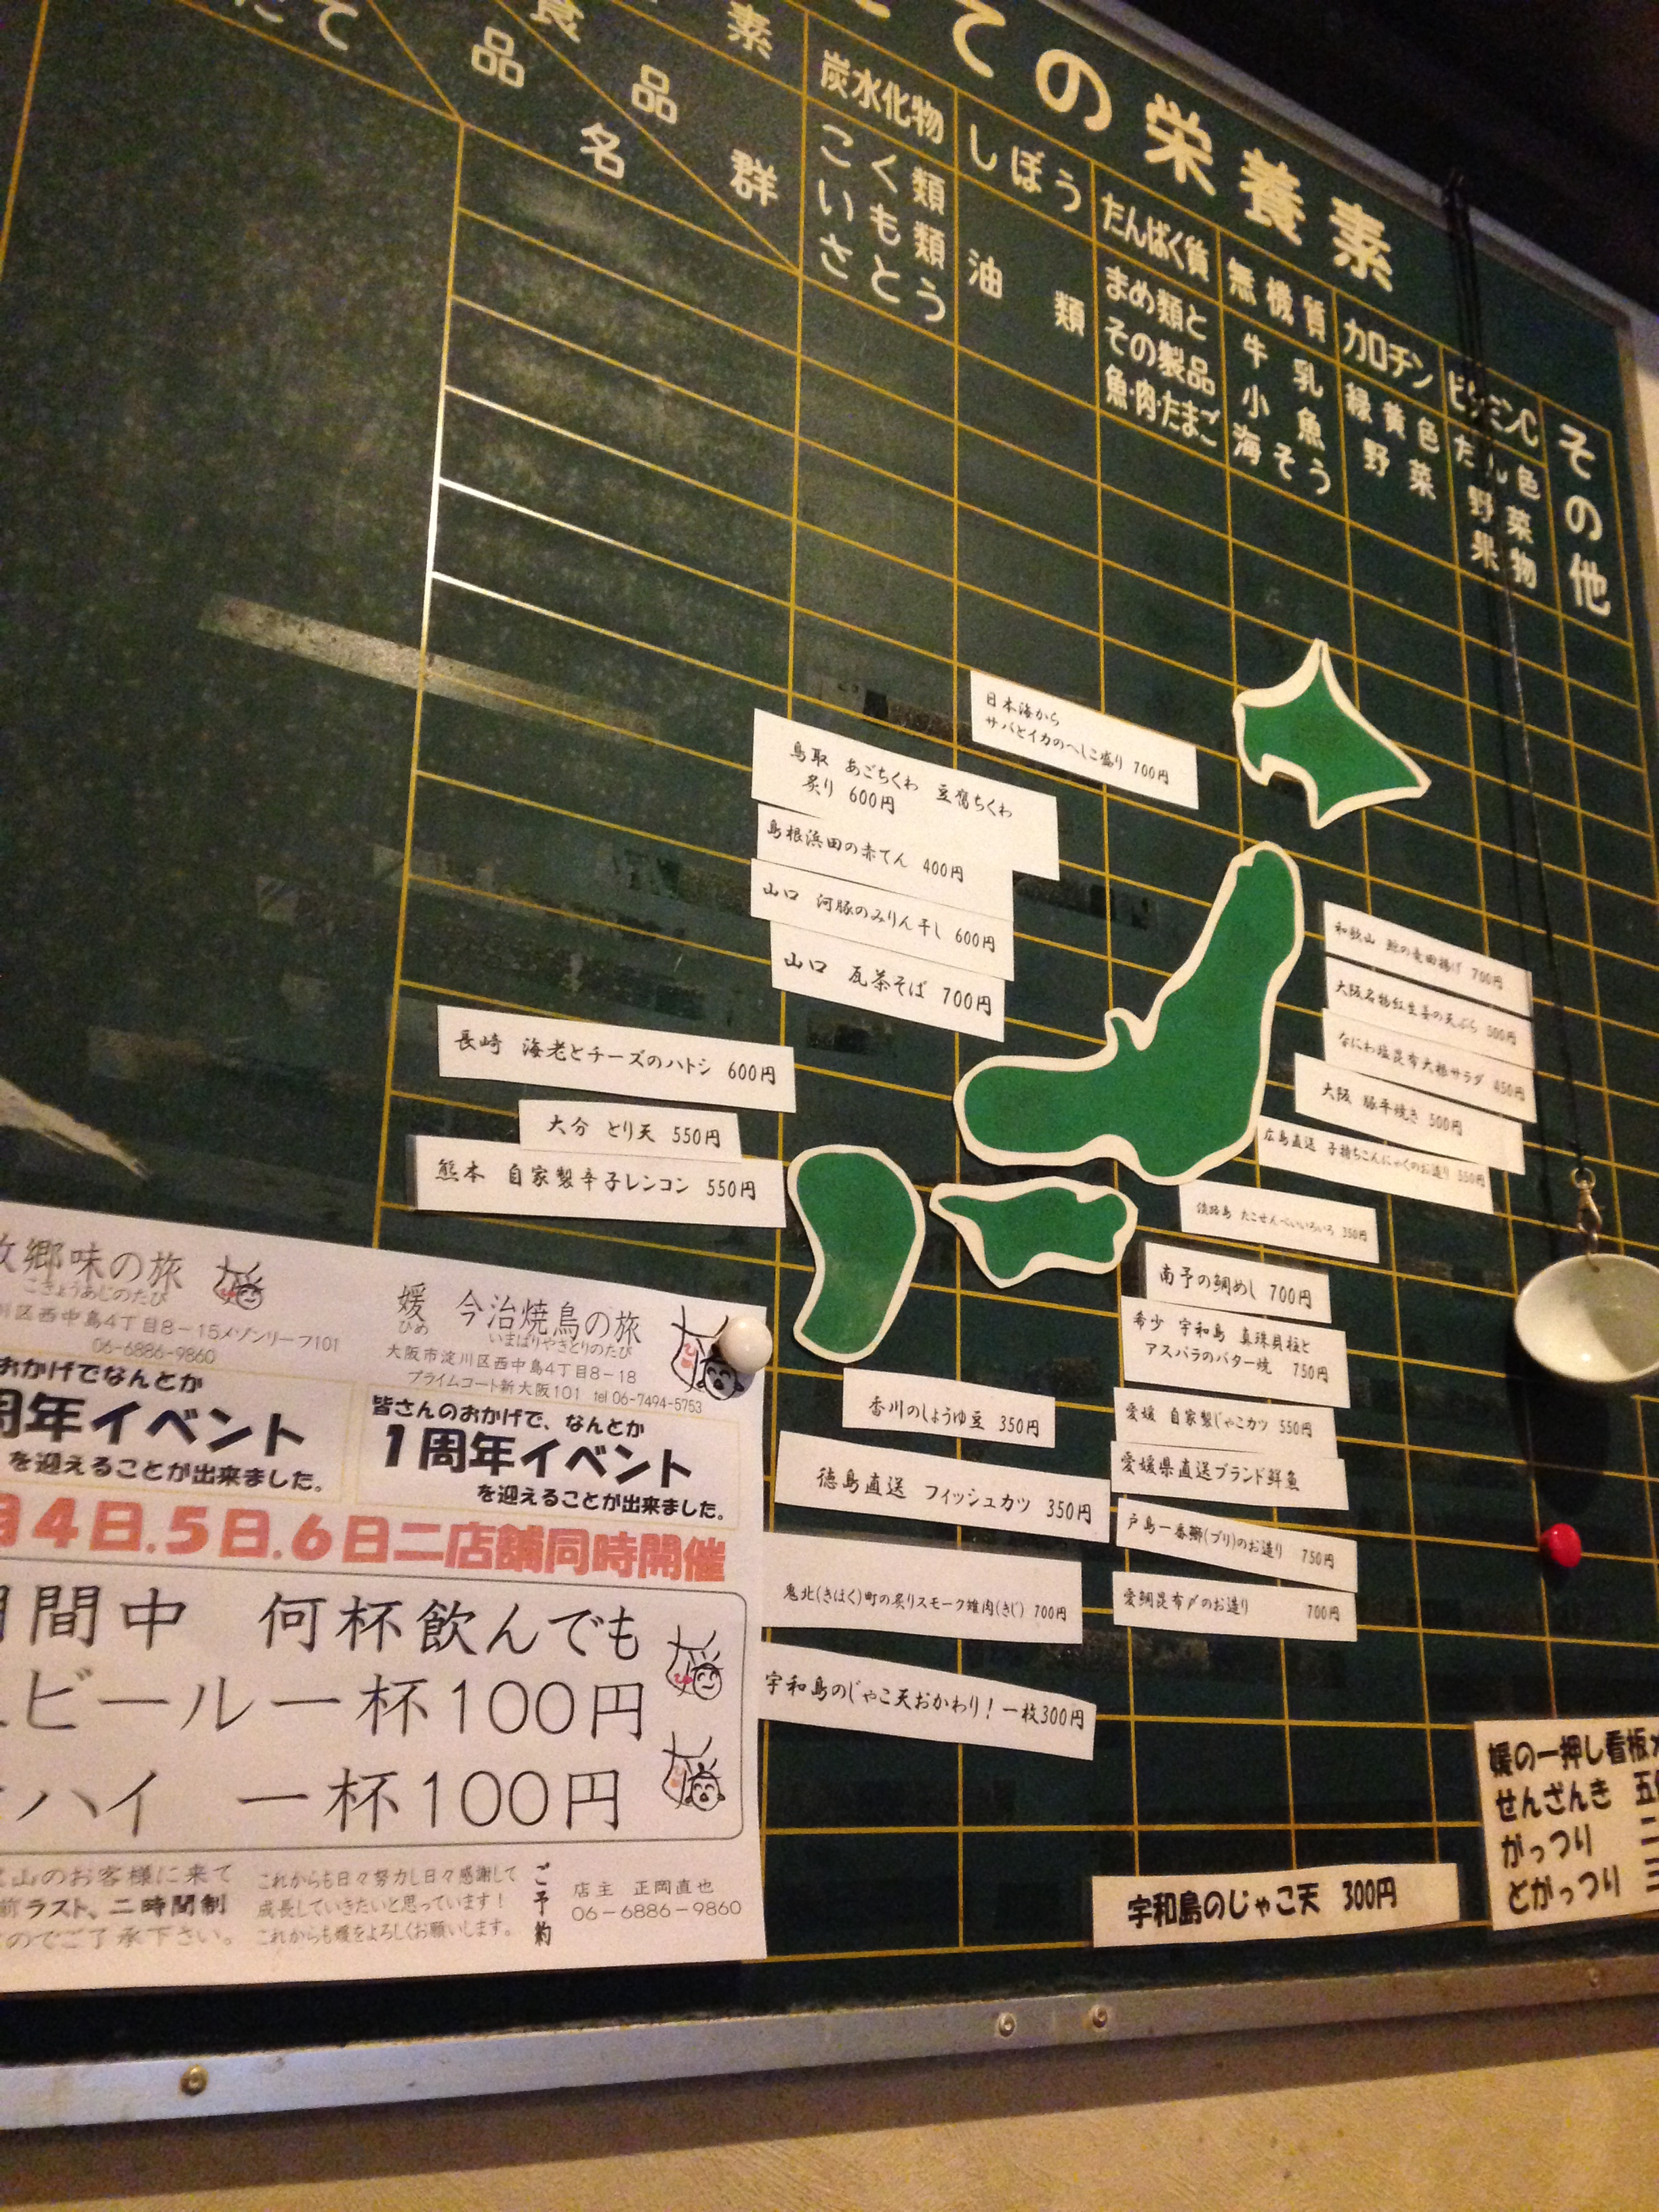 ての栄養素
食品群
品名
炭水化物
こく類
いも類
さとう
しぼう
油類
たんぱく質
まめ類と
その製品
魚・肉・たまご
無機質
牛乳
小魚
海そう
カロチン
緑黄色
野菜
ビタミンC
たん色
野菜
果物
その他
日本海から
サバとイカのへしこ盛り 700円
鳥取 あごちくわ 豆腐ちくわ
炙り 600円
島根浜田の赤てん 400円
山口 河豚のみりん干し 600円
山口 瓦茶そば 700円
長崎 海老とチーズのハトシ 600円
大分 とり天 550円
熊本 自家製辛子レンコン 550円
和歌山 鯨の竜田揚げ 700円
大阪名物紅生姜の天ぷら 500円
なにわ塩昆布大根サラダ 450円
大阪 豚平焼き 500円
広島直送 子持ちこんにゃくのお造り 550円
淡路島 たこせんべいいろいろ 350円
南予の鯛めし 700円
希少 宇和島 真珠貝柱と
アスパラのバター焼 750円
愛媛 自家製じゃこカツ 550円
愛媛県直送ブランド鮮魚
戸島一番鰤(ブリ)のお造り 750円
愛鯛昆布〆のお造り 700円
香川のしょうゆ豆 350円
徳島直送 フィッシュカツ 350円
鬼北(きほく)町の炙りスモーク雉肉(きじ) 700円
宇和島のじゃこ天おかわり！一枚300円
宇和島のじゃこ天 300円
媛の一押し看板
せんざんき 五
がっつり 二
とがっつり 三
故郷味の旅
こきょうあじのたび
川区西中島4丁目8－15メゾンリーフ101
06-6886-9860
おかげでなんとか
周年イベント
を迎えることが出来ました。
媛 今治焼鳥の旅
ひめ いまばりやきとりのたび
大阪市淀川区西中島4丁目8－18
プライムコート新大阪101 tel 06-7494-5753
皆さんのおかげで、なんとか
1周年イベント
を迎えることが出来ました。
月4日.5日.6日二店舗同時開催
期間中 何杯飲んでも
ビール一杯100円
ハイ 一杯100円
山のお客様に来て
前ラスト、二時間制
のでご了承下さい。
これからも日々努力し日々感謝して
成長していきたいと思っています！
これからも媛をよろしくお願いします。
ご予約
店主 正岡直也
06－6886－9860